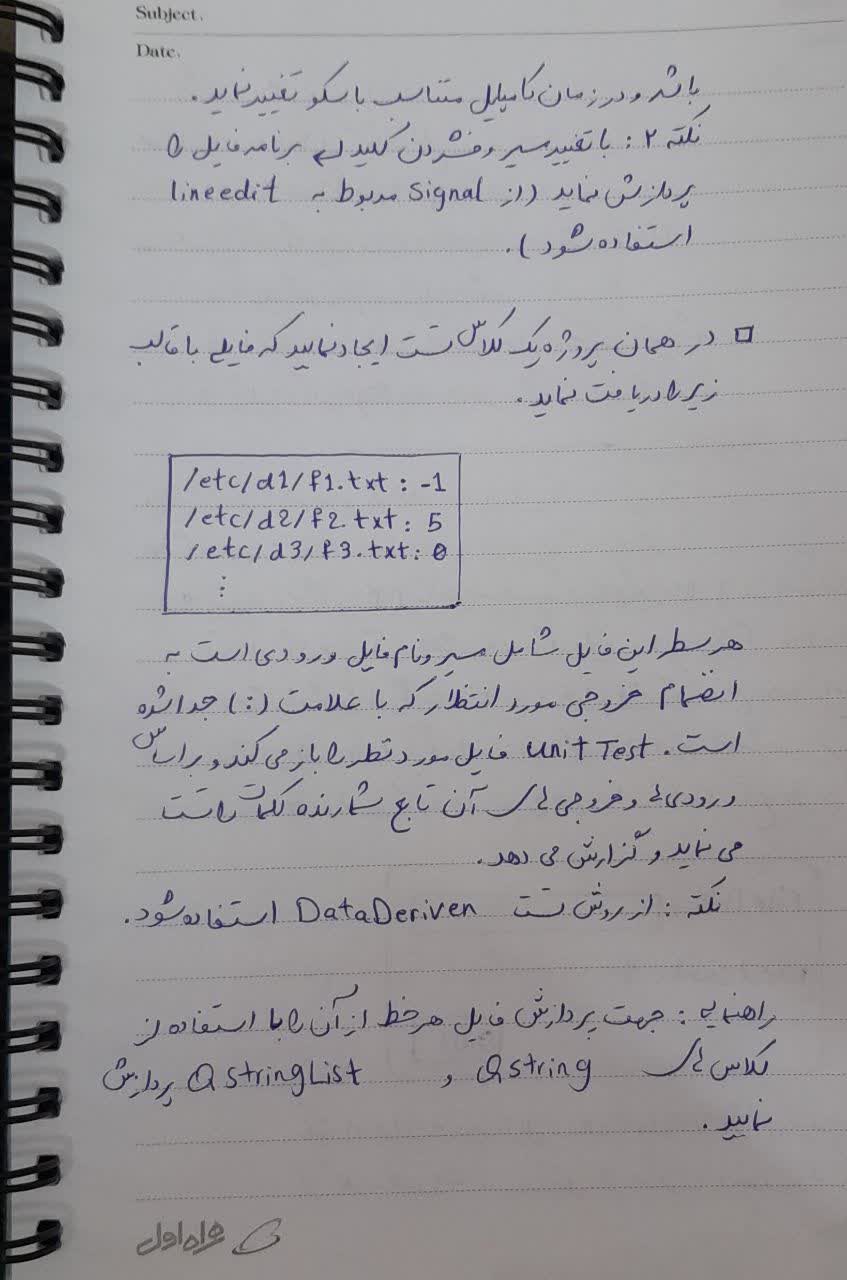 Subject.
Date.
باشد و در زمان کامپایل متناسب با سکو تغییر نماید.
نکته ۲: با تغییر مسیر و فشردن کلیدها برنامه فایل را
پردازش نماید (از Signal مربوط به lineedit
استفاده شود).
□ در همان پروژه یک کلاس تست ایجاد نمایید که فایلی با قالب
زیر را دریافت نماید.
/etc/d1/f1.txt : -1
/etc/d2/f2.txt : 5
/etc/d3/f3.txt : 0
⋮
هر سطر این فایل شامل مسیر و نام فایل ورودی است به
انضمام خروجی مورد انتظار که با علامت (:) جدا شده
است. Unit Test فایل مورد نظر را باز می کند و براساس
ورودی ها و خروجی های آن تابع شمارنده کلمات را تست
می نماید و گزارش می دهد.
نکته: از روش تست DataDeriven استفاده شود.
راهنمایی: جهت پردازش فایل هر خط از آن را با استفاده از
کلاس های Qstring و QstringList پردازش
نمایید.
همراه اول